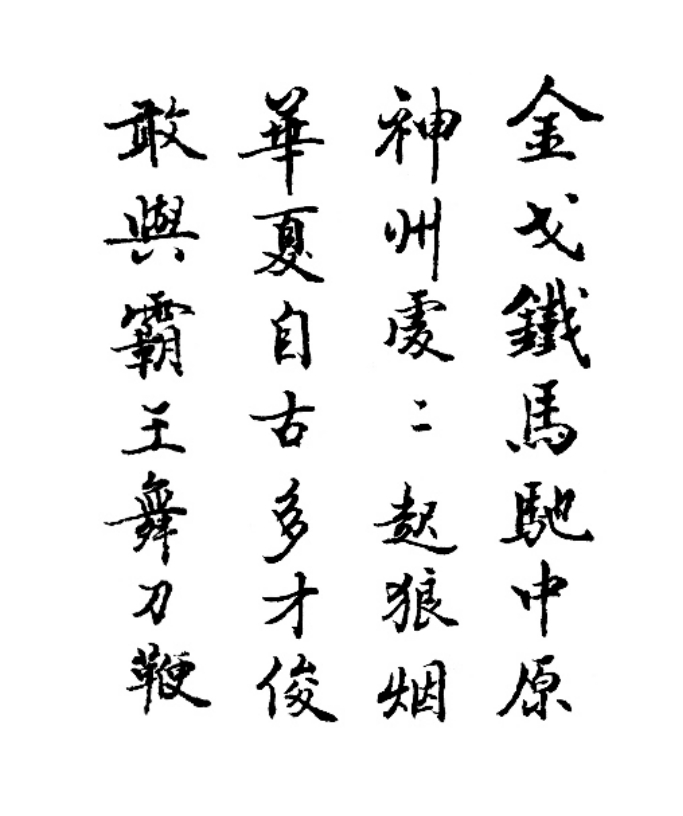 金戈鐵馬馳中原
神州處〻起狼烟
華夏自古多才俊
敢與霸王舞刀鞭